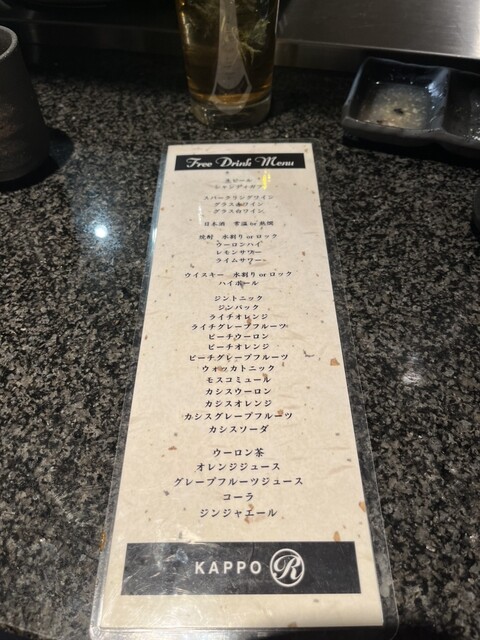 Free Drink Menu
生ビール
シャンディガフ
スパークリングワイン
グラス白ワイン
グラス赤ワイン
日本酒 常温 or 熱燗
焼酎 水割り or ロック
ウーロンハイ
レモンサワー
ライムサワー
ウイスキー 水割り or ロック
ハイボール
ジントニック
ジンバック
ライチオレンジ
ライチグレープフルーツ
ピーチウーロン
ピーチオレンジ
ピーチグレープフルーツ
ウォッカトニック
モスコミュール
カシスウーロン
カシスオレンジ
カシスグレープフルーツ
カシスソーダ
ウーロン茶
オレンジジュース
グレープフルーツジュース
コーラ
ジンジャエール
KAPPO R